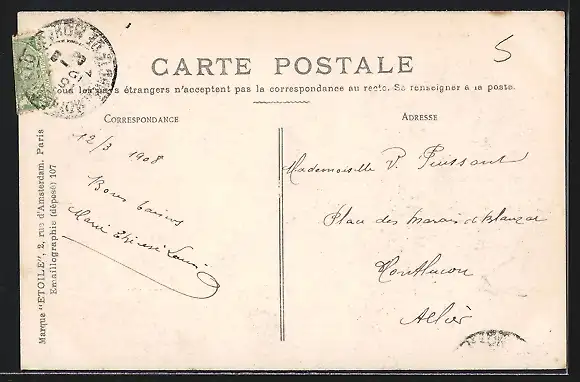 5
CARTE POSTALE
Tous les pays étrangers n'acceptent pas la correspondance au recto. Se renseigner à la poste.
CORRESPONDANCE
ADRESSE
12/3 1908
Bons baisers
Marie Louis
Mademoiselle V. Puissant
Place des Marais
Montluçon
Allier
Marque "ETOILE", 2, rue d'Amsterdam. Paris
Emaillographie (déposé) 107